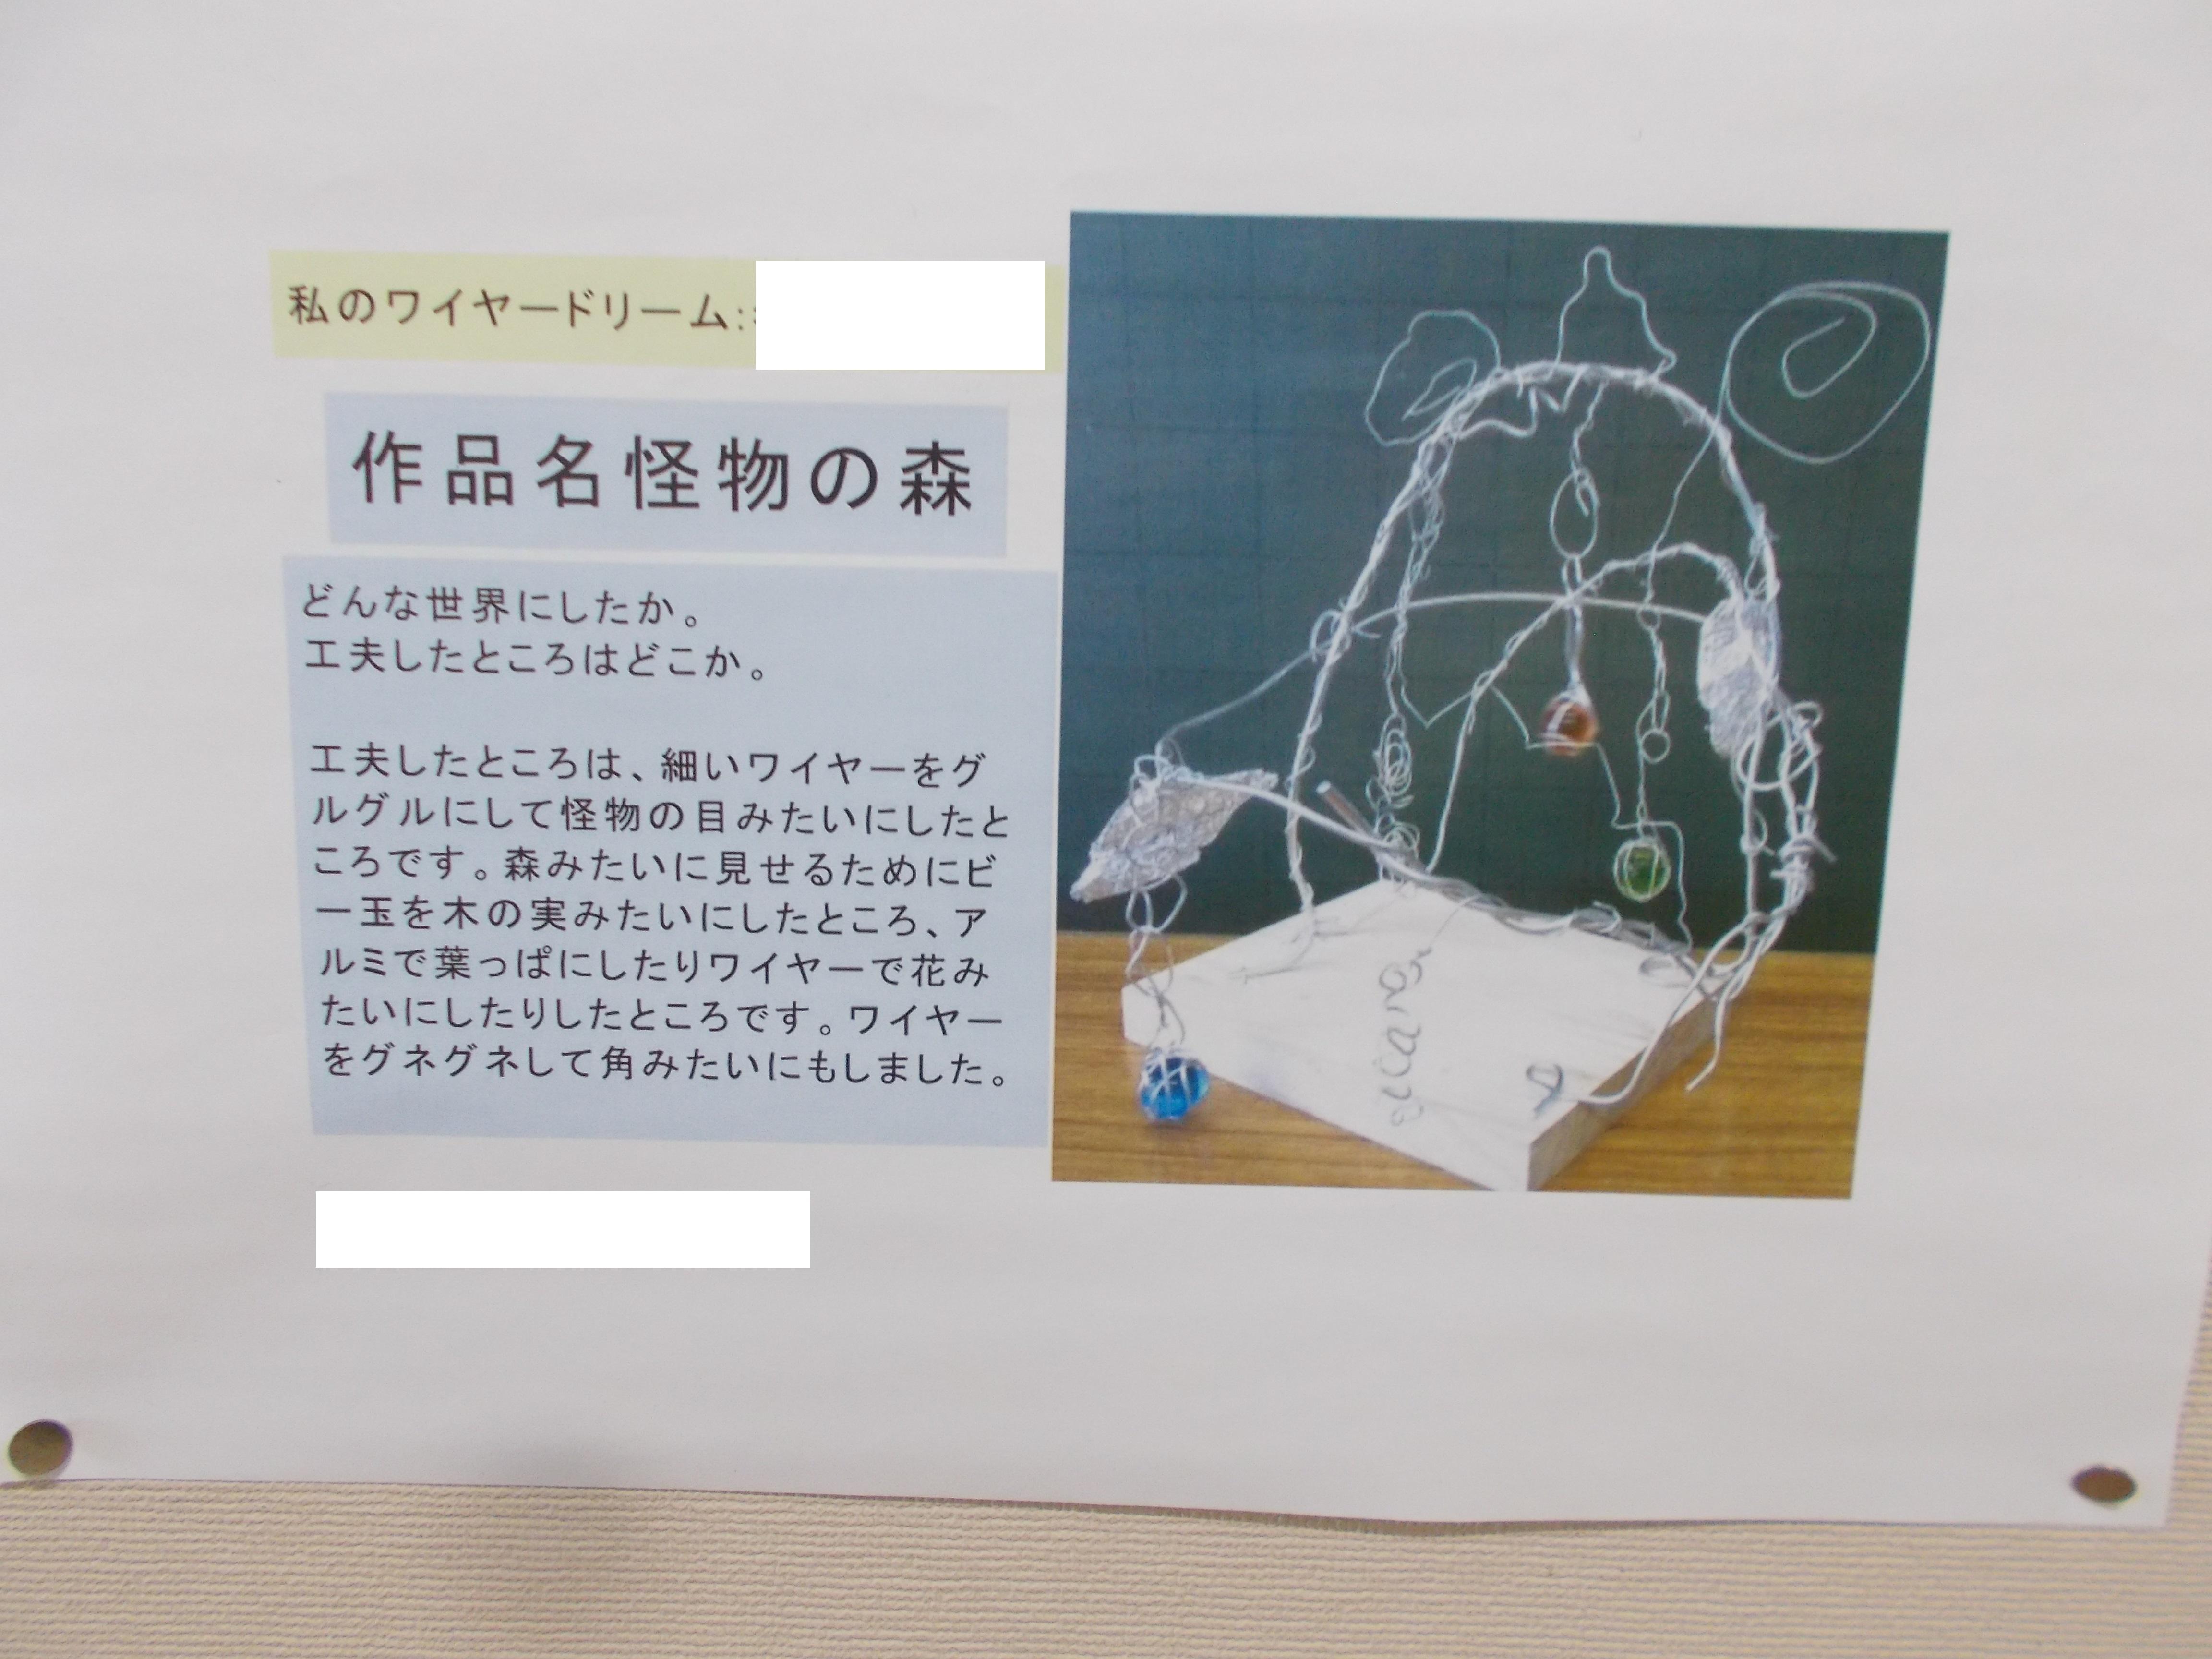 私のワイヤードリーム:
作品名怪物の森
どんな世界にしたか。
工夫したところはどこか。
工夫したところは、細いワイヤーをグ
ルグルにして怪物の目みたいにしたと
ころです。森みたいに見せるためにビ
ー玉を木の実みたいにしたところ、ア
ルミで葉っぱにしたりワイヤーで花み
たいにしたりしたところです。ワイヤー
をグネグネして角みたいにもしました。